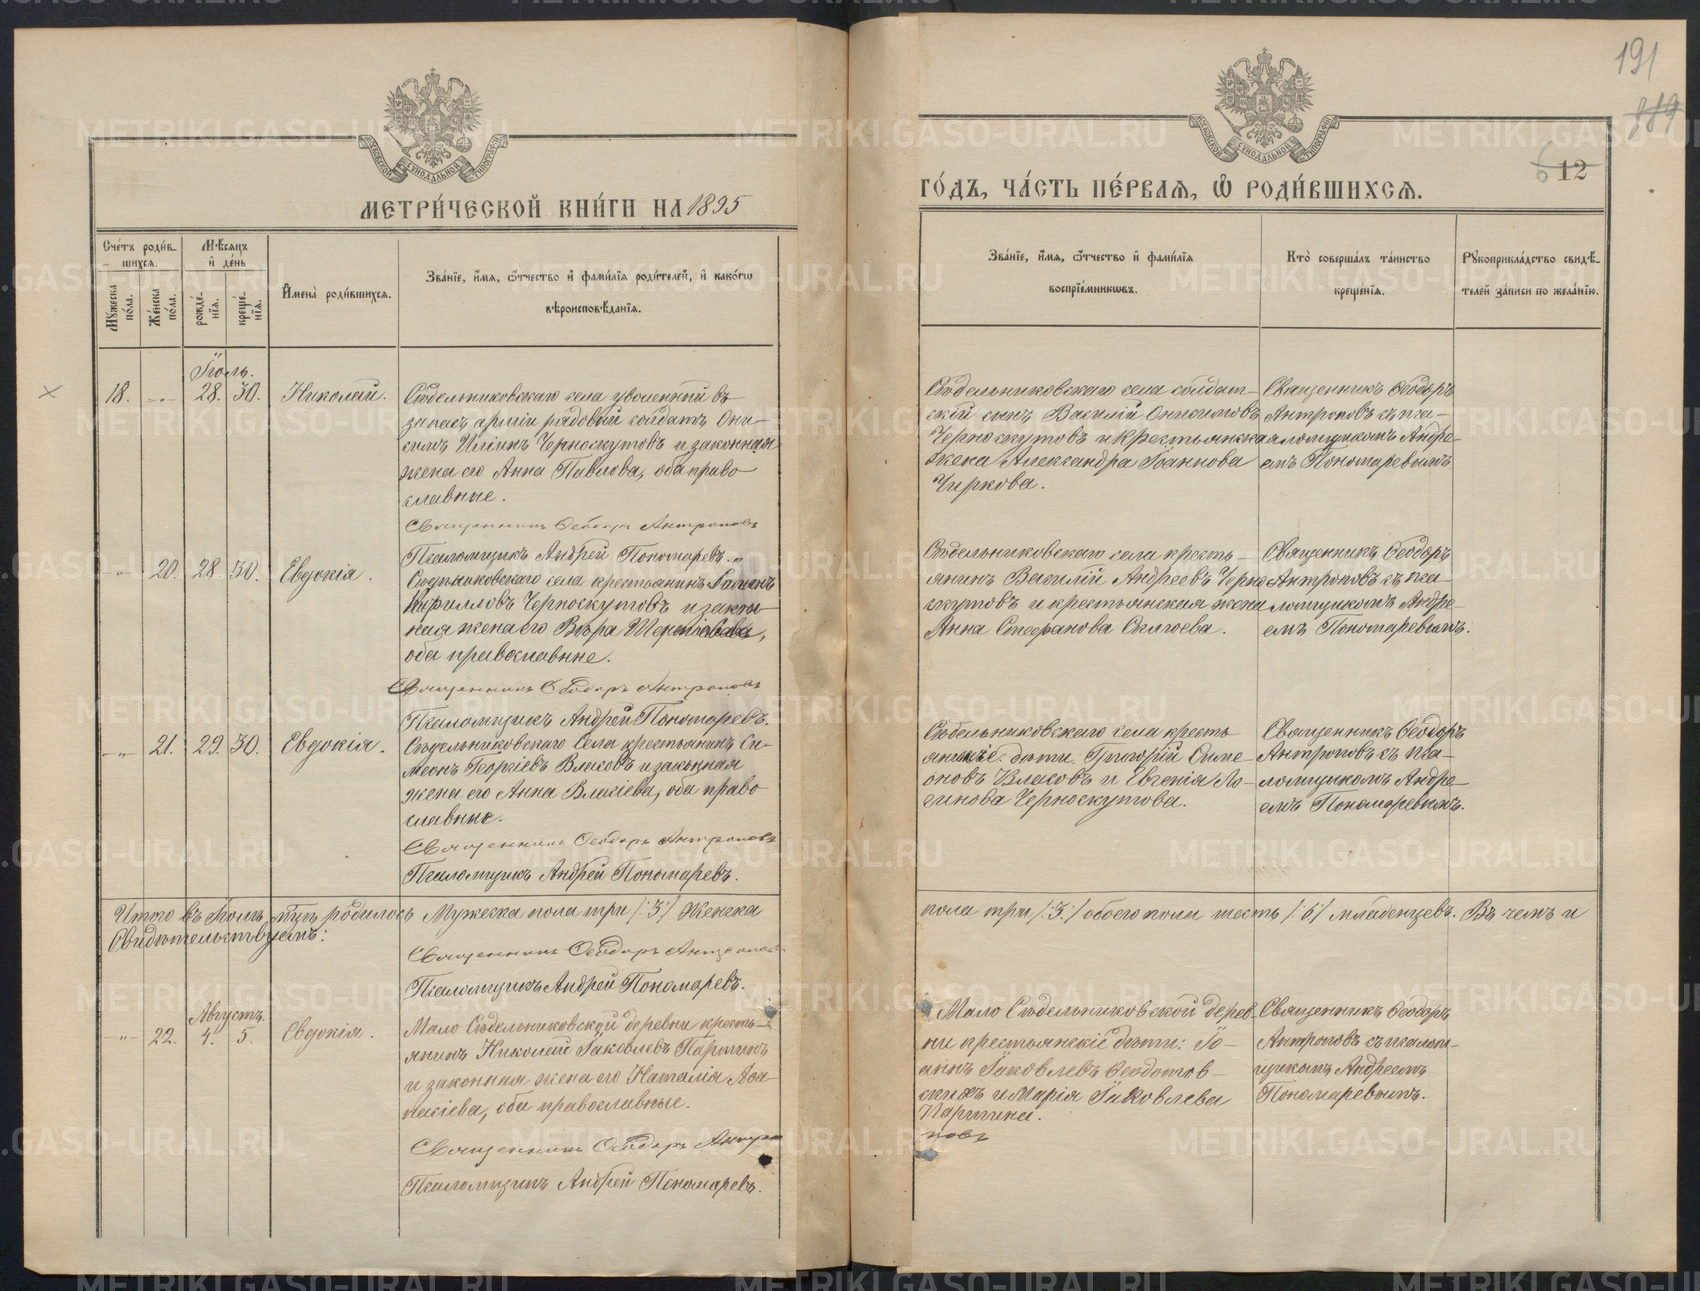 191
889
6 12
МОСКОВСКОЙ СѴНОДАЛЬНОЙ ТИПОГРАФІИ
МОСКОВСКОЙ СѴНОДАЛЬНОЙ ТИПОГРАФІИ
МЕТРИ́ЧЕСКОЙ КНИ́ГИ НА 1895
ГО́ДЪ, ЧА́СТЬ ПЕ́РВАЯ, Ѡ҆ РОДИ́ВШИХСЯ.
Сче́тъ роди́в-
шихся.
Мꙋ́жеска по́ла.
Же́нска по́ла.
Мѣ́сяцъ
и҆ де́нь
рожде́-нїя.
креще́-нїя.
И҆мена̀ роди́вшихся.
Зва́нїе, и҆́мя, ѻ҆́тчество и҆ фами́лїя роди́телей, и҆ како́гѡ
вѣроисповѣ́данїя.
Зва́нїе, и҆́мя, ѻ҆́тчество и҆ фами́лїя
воспрїе́мникѡвъ.
Кто̀ соверша́лъ та́инство
креще́нїя.
Рꙋкоприкла́дство свидѣ́-
телей за́писи по жела́нїю.
Іюль.
18. -„- 28. 30. Николай.
Сѣдельниковскаго села уволенный въ
запасъ арміи рядовой солдатъ Они-
симъ Ильинъ Черноскутовъ и законная
жена его Анна Павлова, оба право
славные.
Священникъ Ѳеодоръ Антроповъ
Псаломщикъ Андрей Пономаревъ.
Сѣдельниковскаго села солдат-
ской сынъ Василій Онисимовъ
Черноскутовъ и крестьянская
жена Александра Іоаннова
Чиркова.
Священникъ Ѳеодоръ
Антроповъ съ пса-
ломщикомъ Андре-
емъ Пономаревымъ
-„- 20. 28. 30. Евдокія.
Сѣдельниковскаго села крестьянинъ
Кириллов Черноскутовъ и закон-
ная жена его Вѣра
оба православные.
Священникъ Ѳеодоръ Антроповъ
Псаломщикъ Андрей Пономаревъ.
Сѣдельниковскаго села кресть-
янинъ Василій Андреевъ Черно
скутовъ и крестьянская жена
Анна Стефанова
Священникъ Ѳеодоръ
Антроповъ съ пса-
ломщикомъ Андре-
емъ Пономаревымъ.
-„- 21. 29. 30. Евдокія.
Сѣдельниковскаго Села крестьянинъ Си-
меонъ Георгіевъ Власовъ и законная
жена его Анна Власіева, оба право
славные.
Священникъ Ѳеодоръ Антроповъ
Псаломщикъ Андрей Пономаревъ.
Сѣдельниковскаго села кресть
янскіе дѣти: Григорій Симе-
оновъ Власовъ и Евгенія Ло-
гинова Черноскутова.
Священникъ Ѳеодоръ
Антроповъ съ пса-
ломщикомъ Андре-
емъ Пономаревымъ.
Итого въ Іюлѣ м-цѣ родилось Мужеска пола три /:3:/ Женска
пола три /:3:/ обоего пола шесть /:6:/ младенцевъ. Въ чемъ и
Свидѣтельствуемъ:
Священникъ Ѳеодоръ Антроповъ
Псаломщикъ Андрей Пономаревъ.
Августъ.
-„- 22. 4. 5. Евдокія.
Мало Сѣдельниковской деревни кресть-
янинъ Николай Іаковлевъ Паршинъ
и законная жена его Наталія Аѳа-
насіева, оба православные.
Священникъ Ѳеодоръ Антро
Псаломщикъ Андрей Пономаревъ.
Мало Сѣдельниковской дерев-
ни крестьянскіе дѣти: Іо-
аннъ Іаковлевъ Ѳеодотов-
скихъ и Марія Іаковлева
Паршина.
повъ
Священникъ Ѳеодоръ
Антроповъ съ псалом-
щикомъ Андреемъ
Пономаревымъ.
METRIKI.GASO-URAL.RU